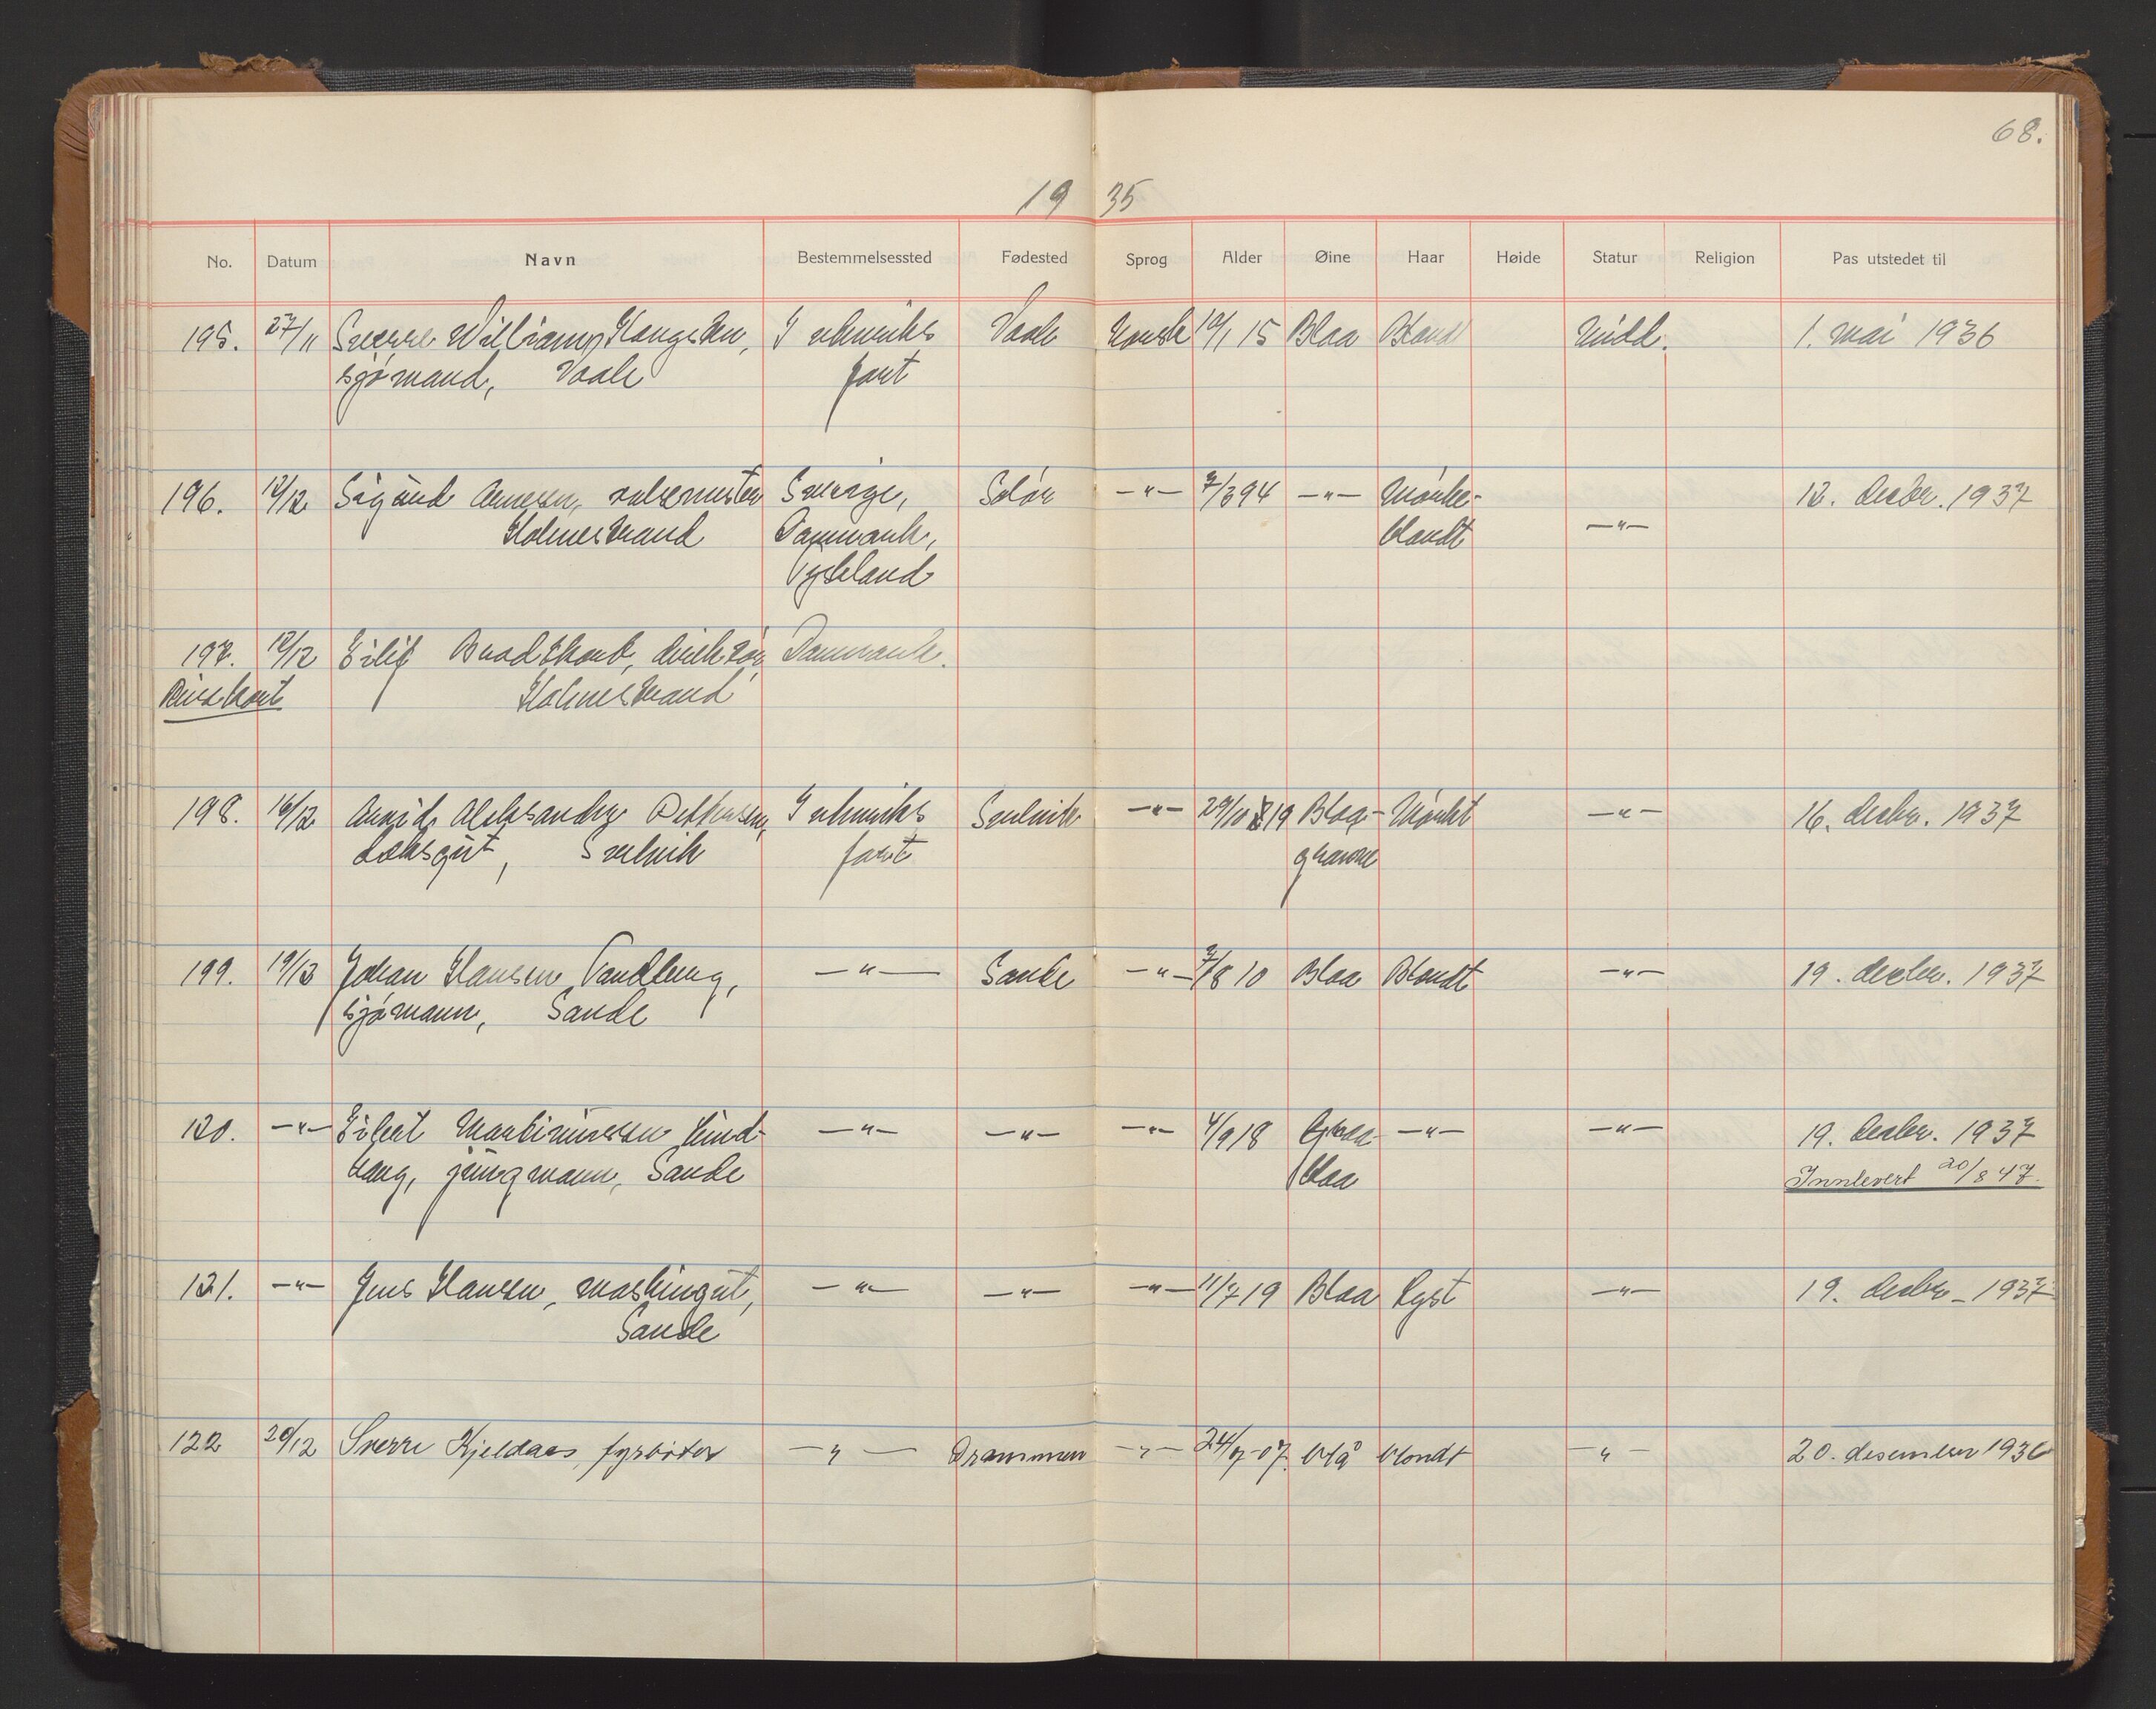 68.
19 35
No. Datum Navn Bestemmelsessted Fødested Sprog Alder Øine Haar Høide Statur Religion Pas utstedet til
195. 27/11 Sverre William Haugsten, I utenriks Vaale Norsk 10/1 15 Blaa Blond Midd. 1. mai 1936
sjømand, Vaale fart
196. 12/12 Sigurd Arnesen, Sverige, Solør —"— 7/3 94 —"— Mørke- 12. desbr. 1937
Holmestrand Danmark, blondt —"—
Tyskland
197. 12/12 Eilif Bradskont, direktør, Danmark.
Holmestrand
198. 16/12 Arvid Aleksander Pettersen, I utenriks Svelvik —"— 29/10 19 Blaa- Mørkt —"— 16. desbr. 1937
dæksgut, Svelvik fart graane
199. 19/12 Johan Hansen Vandberg, —"— Sande —"— 7/8 10 Blaa Blondt —"— 19. desbr. 1937
sjømann, Sande
120. —"— Eilert Martiniussen Lind- —"— —"— —"— 4/9 18 Graa- —"— —"— 19. desbr. 1937
haug, jungmann, Sande blaa Innlevert 20/8 47.
121. —"— Jens Hansen, maskingut, —"— —"— —"— 11/7 19 Blaa Lyst —"— 19. desbr. 1937
Sande
122 20/12 Sverre Kjeldaas, fyrbøter —"— Drammen —"— 24/7-07. blå blondt —"— 20. desember 1936